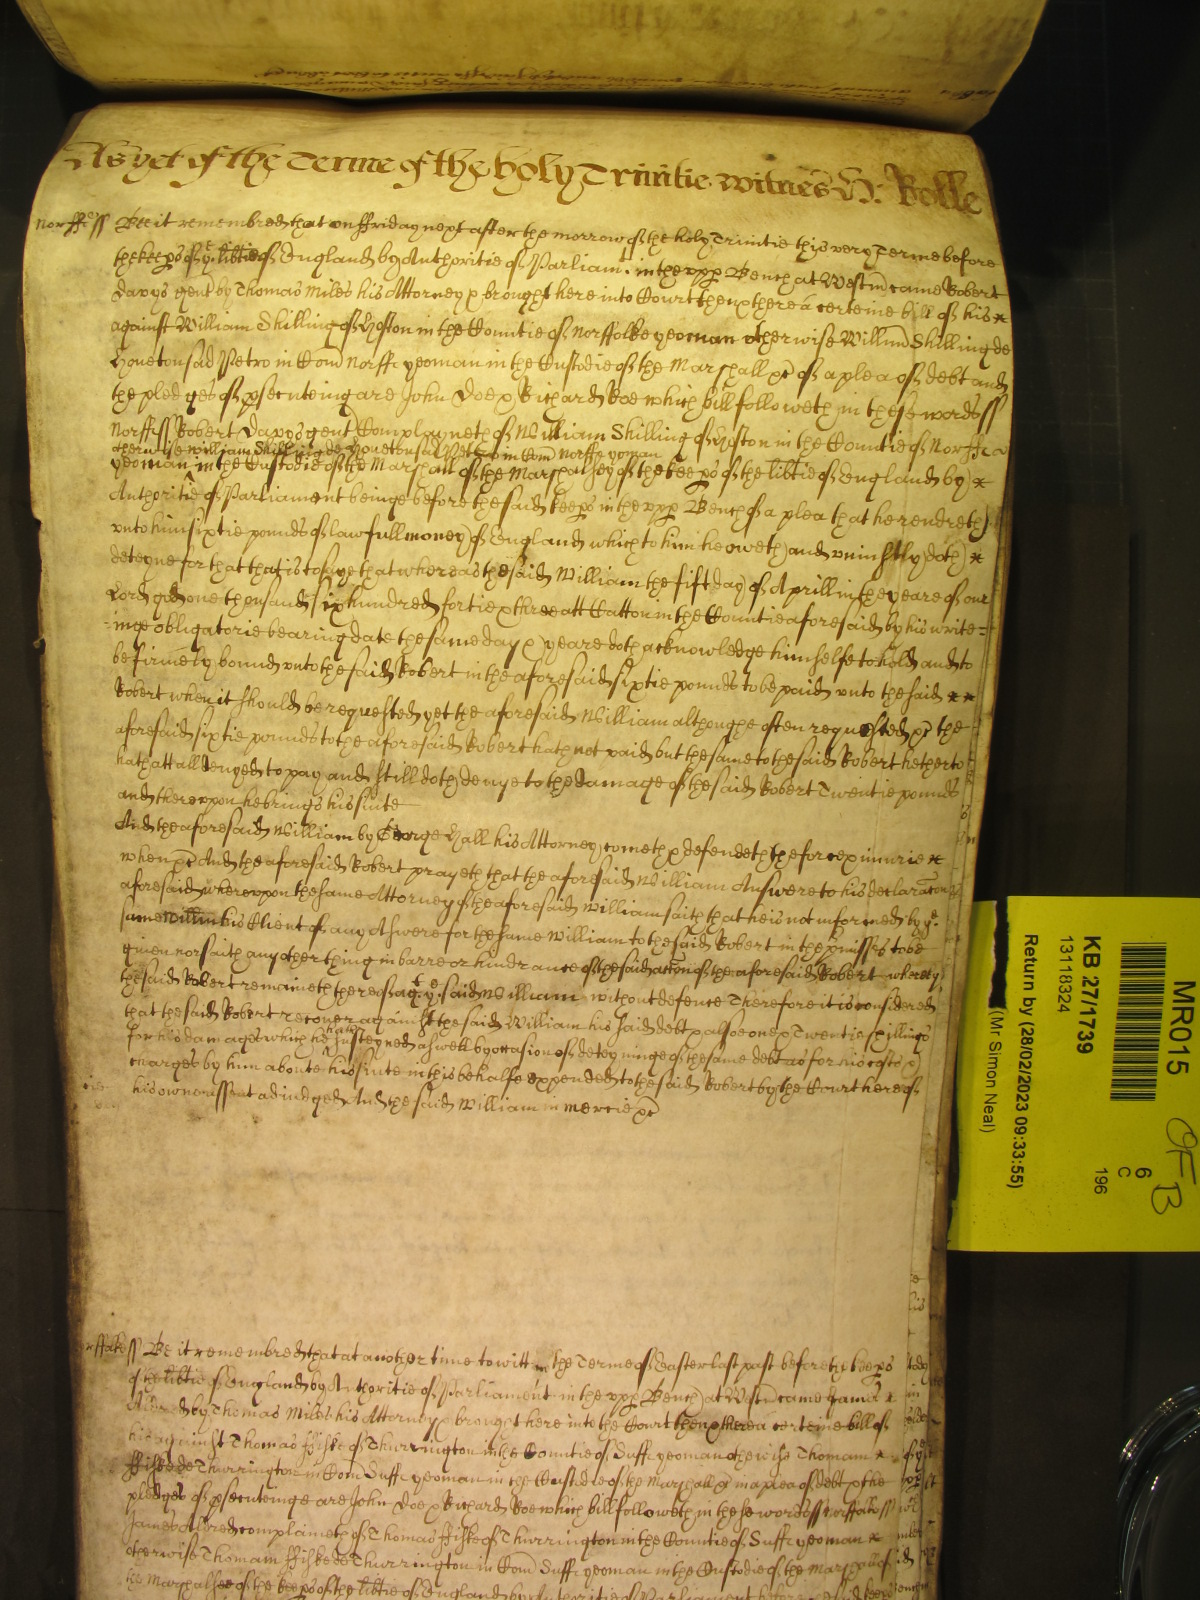 As yet of the Terme of the holy Trinitie witnes H: Rolle
Norff ss Be it remembred that on ffriday next after the morrow of the holy Trinitie this very Terme before
the keeps of ye libtie of England by Authoritie of Parliamt in the upp Bench at Westm came Robert
Davys gent by Thomas Miles his Attorney & brought here into Court then & there a certeine bill of his
against William Skilling of in the Countie of Norffolke yeoman otherwise Willm Skilling de
in Com Norff yeoman in the Custodie of the Marshall &c of a plea of debt and
the pledges of psecuteing are John Doe & Richard Roe which bill followeth in these words ss
Norff ss Robert Davys gent Complayneth of William Skilling of in the Countie of Norff
otherwise William Skilling de in Com Norff yeoman
yeoman in the Custodie of the Marshall of the Marshalsey of the keeps of the libtie of England by
Authoritie of Parliament beinge before the said keeps in the upp Bench of a plea that he render
unto him sixtie pounds of lawfull money of England which to him he oweth and uniustly doth
deteyne for that that is to saye that whereas the said William the fift day of Aprill in the yeare of our
Lord god one thousand six hundred fortie & three att Catton in the Countie aforesaid by his write=
=inge obligatorie bearing date the same day & yeare doth acknowledge himselfe to hold and to
be firmely bound unto the said Robert in the aforesaid sixtie pounds to be paid unto the said
Robert when it should be requested yet the aforesaid William althoughe often requested &c the
aforesaid sixtie pounds to the aforesaid Robert hath not paid but the same to the said Robert hetherto
hath att all denyed to pay and still doth denye to the damage of the said Robert Twentie pounds
and thereuppon he brings his suite
And the aforesaid William by George Hall his Attorney cometh & defendeth the force & iniurie
when &c And the aforesaid Robert prayeth that the aforesaid William Answere to his declaracon
aforesaid whereuppon the same Attorney of the aforesaid William saith that he is not informed by ye
same Willm his Client of any Aswere for the same William to the said Robert in the pmisses to be
given nor saith any other thing in barre or hindrance of the said action of the aforesaid Robert whereby
the said Robert remaineth thereof agt ye said William without defence Therefore it is considered
that the said Robert recover against the said William his said debt & alsoe one & Twentie shillings
for his damages which he hath susteyned aswell by occasion of deteyninge of the same debt as for his costs &
charges by him about his suite in this behalfe expended to the said Robert by the Court here of
his owne assent adiudged And the said William in mercie &c
ss Be it remembred that at another time to witt in the Terme of Easter last past before the keeps
of the libtie of England by Authoritie of Parliament in the upp Bench at Westm came James
Aldred by Thomas Miles his Attorney & brought here into the Court then & there a certeine bill of
his against Thomas ffiske of Thurrington in the Countie of Suff yeoman otherwise Thomam
ffiske de Thurrington in Com Suff yeoman in the Custodie of the Marshall &c in a plea of debt & the
pledges of psecuteinge are John Doe & Richard Roe which bill followeth in these words ss Norffolk ss
James Aldred complaineth of Thomas ffiske of Thurrington in the Countie of Suff yeoman
otherwise Thomam ffiske de Thurrington in Com Suff yeoman in the Custodie of the Marshall of
the Marshalsee of the keeps of the libtie of England by Authoritie of Parliament before
MR015
KB 27/1739
13118324
Return by (28/02/2023 09:33:55)
(Mr Simon Neal)
6
C
196
OFB